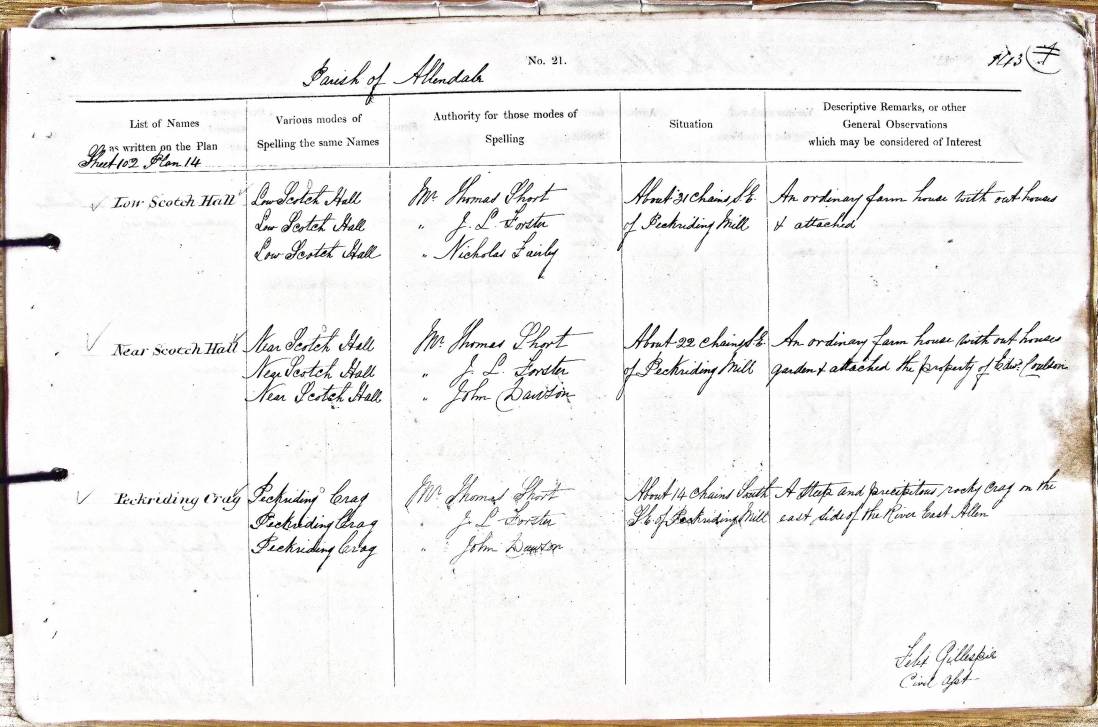 No. 21.
Parish of Allendale
List of Names
as written on the Plan
Various modes of
Spelling the same Names
Authority for those modes of
Spelling
Situation
Descriptive Remarks, or other
General Observations
which may be considered of Interest
Sheet 102 Plan 14
Low Scotch Hall Low Scotch Hall Mr. Thomas Short About 21 chains S.E. An ordinary farm house with out houses
Low Scotch Hall " J. L. Forster of Peckriding Mill & attached
Low Scotch Hall " Nicholas Fairly
Near Scotch Hall Near Scotch Hall Mr. Thomas Short About 22 chains S.E. An ordinary farm house with out houses
Near Scotch Hall " J. L. Forster of Peckriding Mill garden & attached the property of Edwd. Coulson
Near Scotch Hall " John Dawson
Peckriding Crag Peckriding Crag Mr. Thomas Short About 14 chains South A steep and precipitous rocky crag on the
Peckriding Crag " J. L. Forster S.E. of Peckriding Mill east side of the River East Allen
Peckriding Crag " John Dawson
Felix Gillespie
Civil Asst